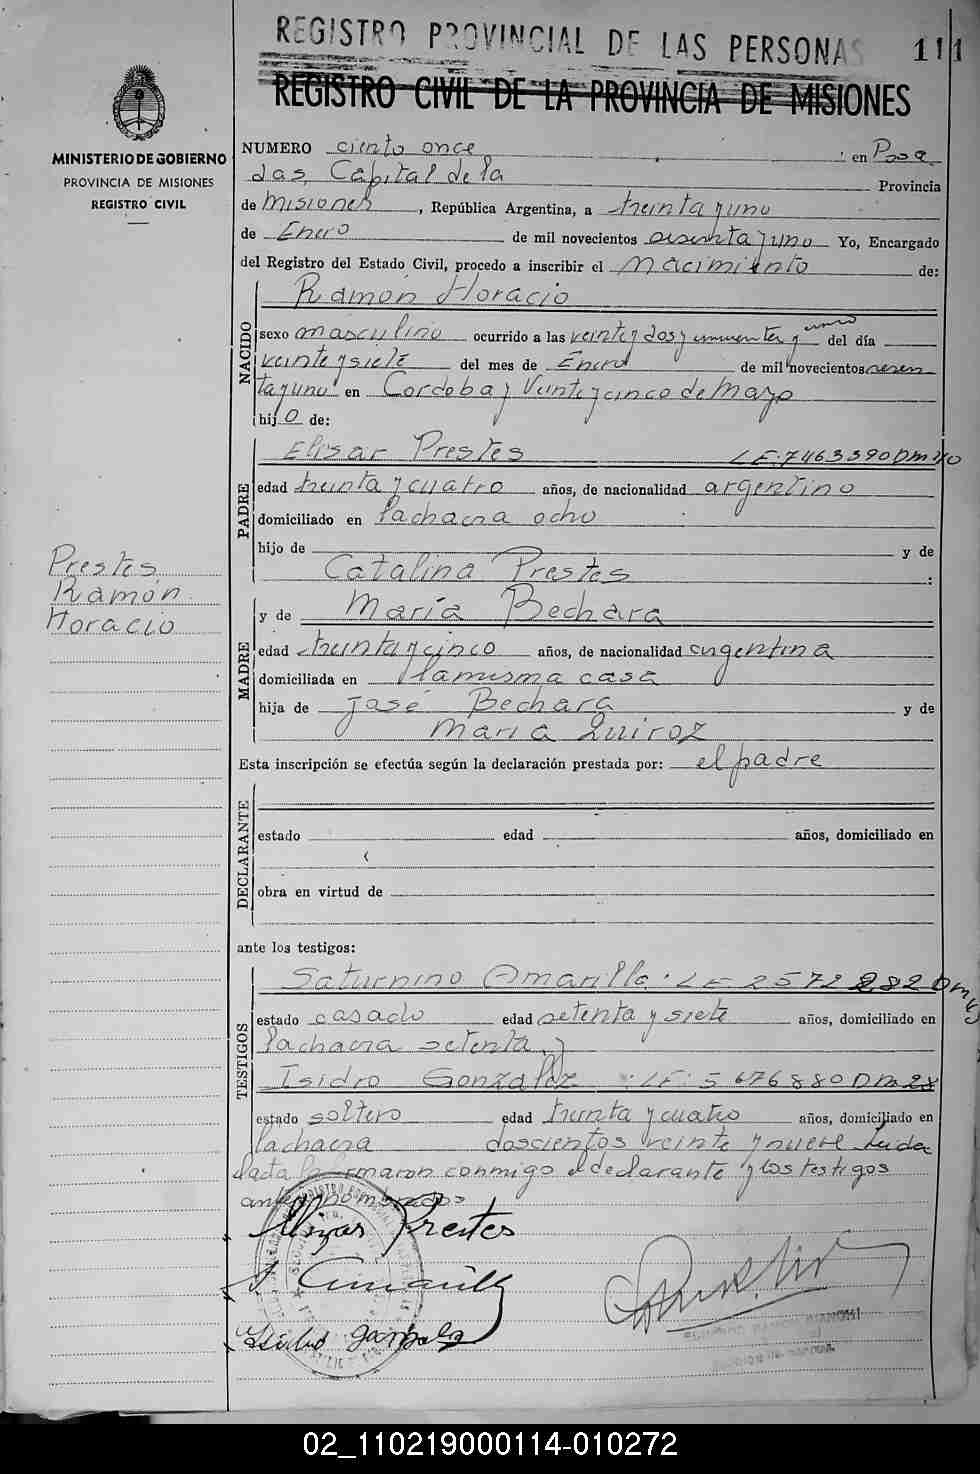 REGISTRO PROVINCIAL DE LAS PERSONAS 111
REGISTRO CIVIL DE LA PROVINCIA DE MISIONES
MINISTERIO DE GOBIERNO
PROVINCIA DE MISIONES
REGISTRO CIVIL
NUMERO ciento once en Posa
das, Capital de la Provincia
de Misiones, República Argentina, a treinta y uno
de Enero de mil novecientos sesenta y uno Yo, Encargado
del Registro del Estado Civil, procedo a inscribir el Nacimiento de:
Ramón Horacio
NACIDO
sexo masculino ocurrido a las veinte y dos y cincuenta y cinco del día
veinte y siete del mes de Enero de mil novecientos sesen
ta y uno en Cordoba y Veinte y cinco de Mayo
hijo de:
Elisar Prestes LE.7463390 DM 40
PADRE
edad treinta y cuatro años, de nacionalidad argentino
domiciliado en la chacra ocho
hijo de y de
Catalina Prestes :
Prestes
Ramón
Horacio
y de María Bechara
MADRE
edad treinta y cinco años, de nacionalidad argentina
domiciliada en la misma casa
hija de José Bechara y de
María Quiroz
Esta inscripción se efectúa según la declaración prestada por: el padre
DECLARANTE
estado edad años, domiciliado en
obra en virtud de
ante los testigos:
Saturnino Amarilla. LE 2572282 DM 43
TESTIGOS
estado casado edad setenta y siete años, domiciliado en
la chacra setenta y
Isidro González LE. 5676880 DM 28
estado soltero edad treinta y cuatro años, domiciliado en
la chacra doscientos veinte y nueve Leida
el acta la firmaron conmigo el declarante y los testigos
antes nombrados
Elizar Prestes
S. Amarilla
Isidro Gonzalez
02_110219000114-010272